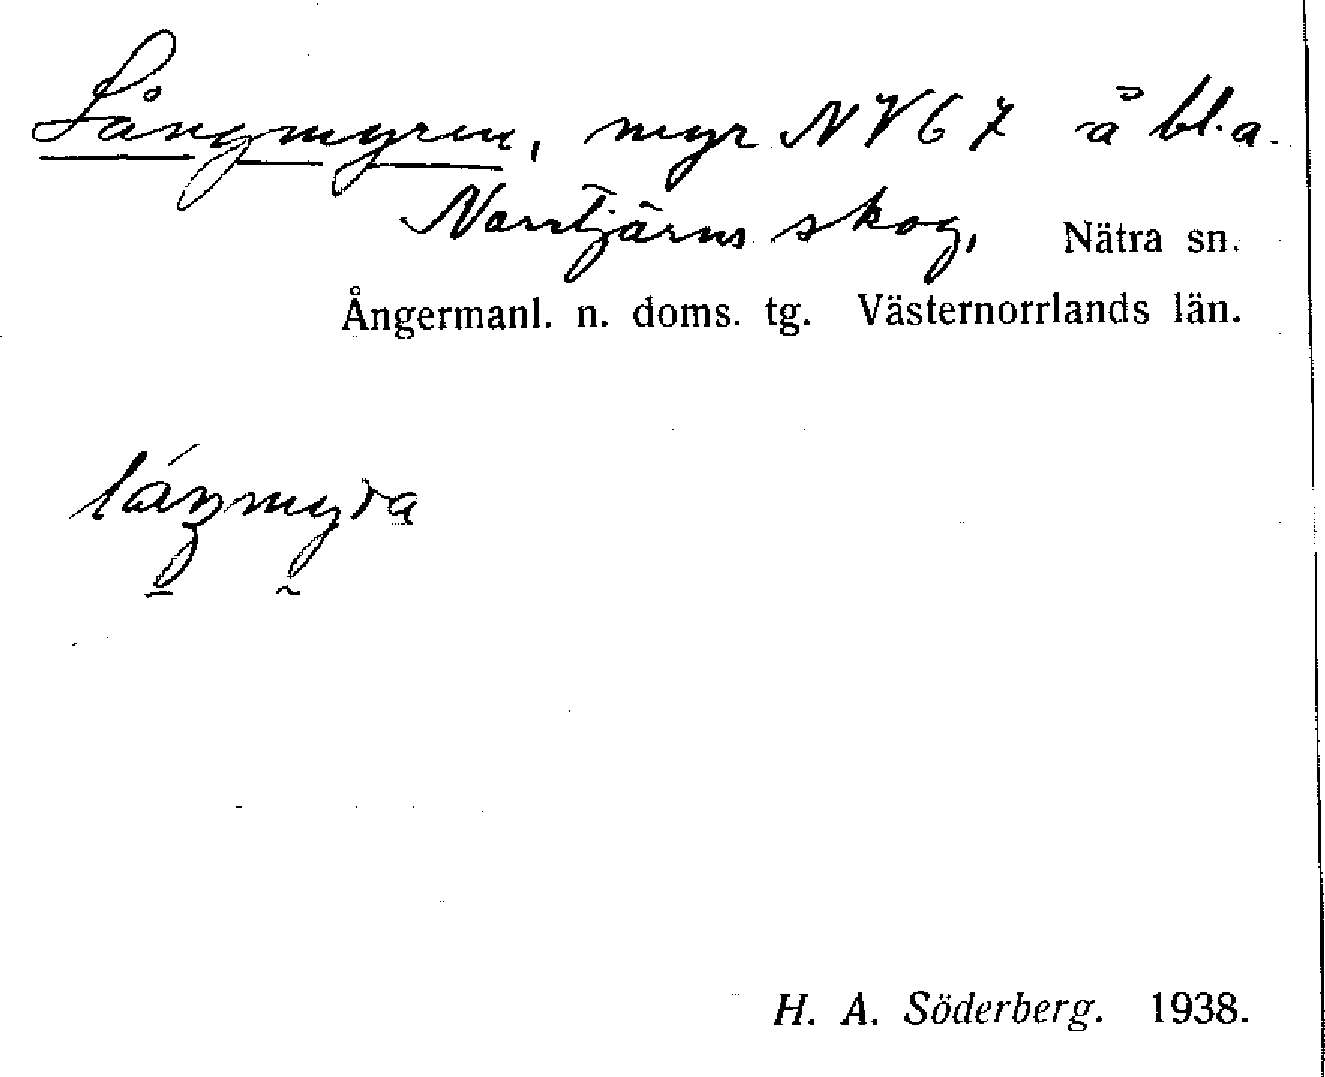 Långmyren, myr NV 67 å bl.a.
Norrtjärns skog, Nätra sn.
Ångermanl. n. doms. tg. Västernorrlands län.
láŋmyra
H. A. Söderberg. 1938.